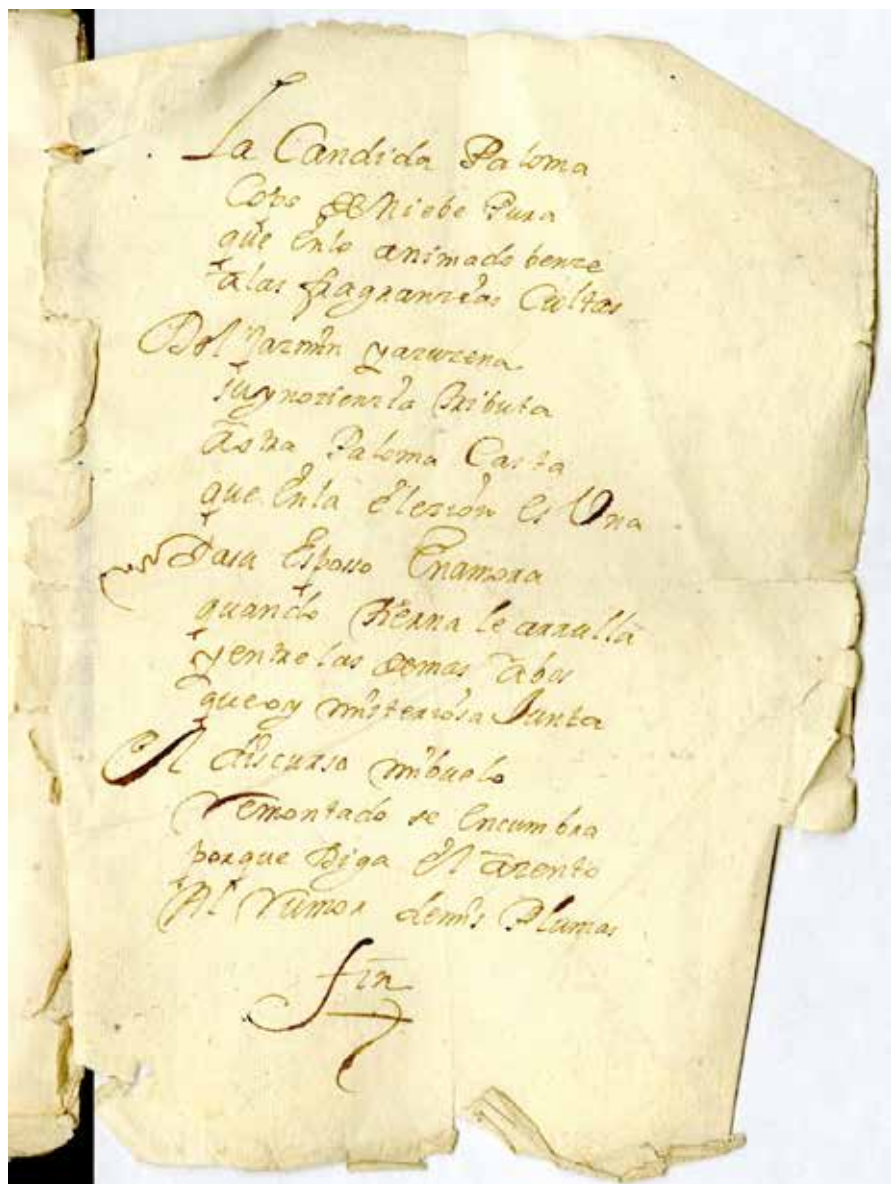 La Candida Paloma
Copo de Niebe Pura
que en lo animado benze
a las fragranzias Cultas
Del Jazmin y azuzena
su ynozienzia tributa
a otra Paloma Casta
que en la elezion es Una
a su Esposso Enamora
quando tierna le arrulla
y entre las demas abes
que oy misteriosa Junta
El discurso mi buelo
Remontado se encumbra
porque Diga el azento
Al Rumor de mis Plumas
fin